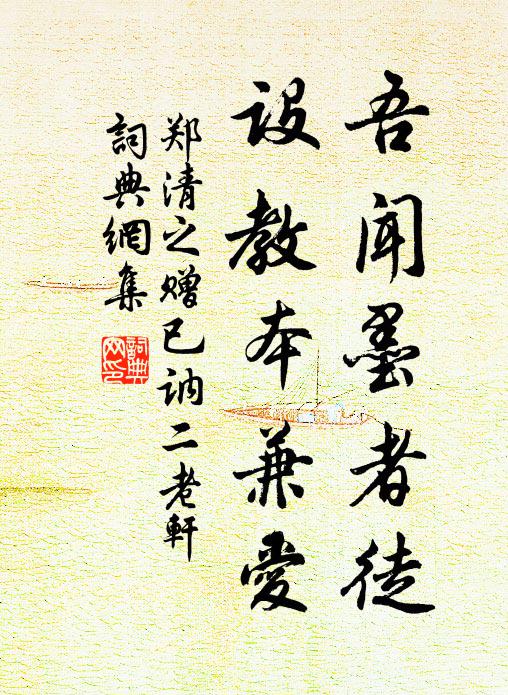 吾闻墨者徒
设教本兼爱
郑清之赠已讷二老轩
詞典網集
詞典网印